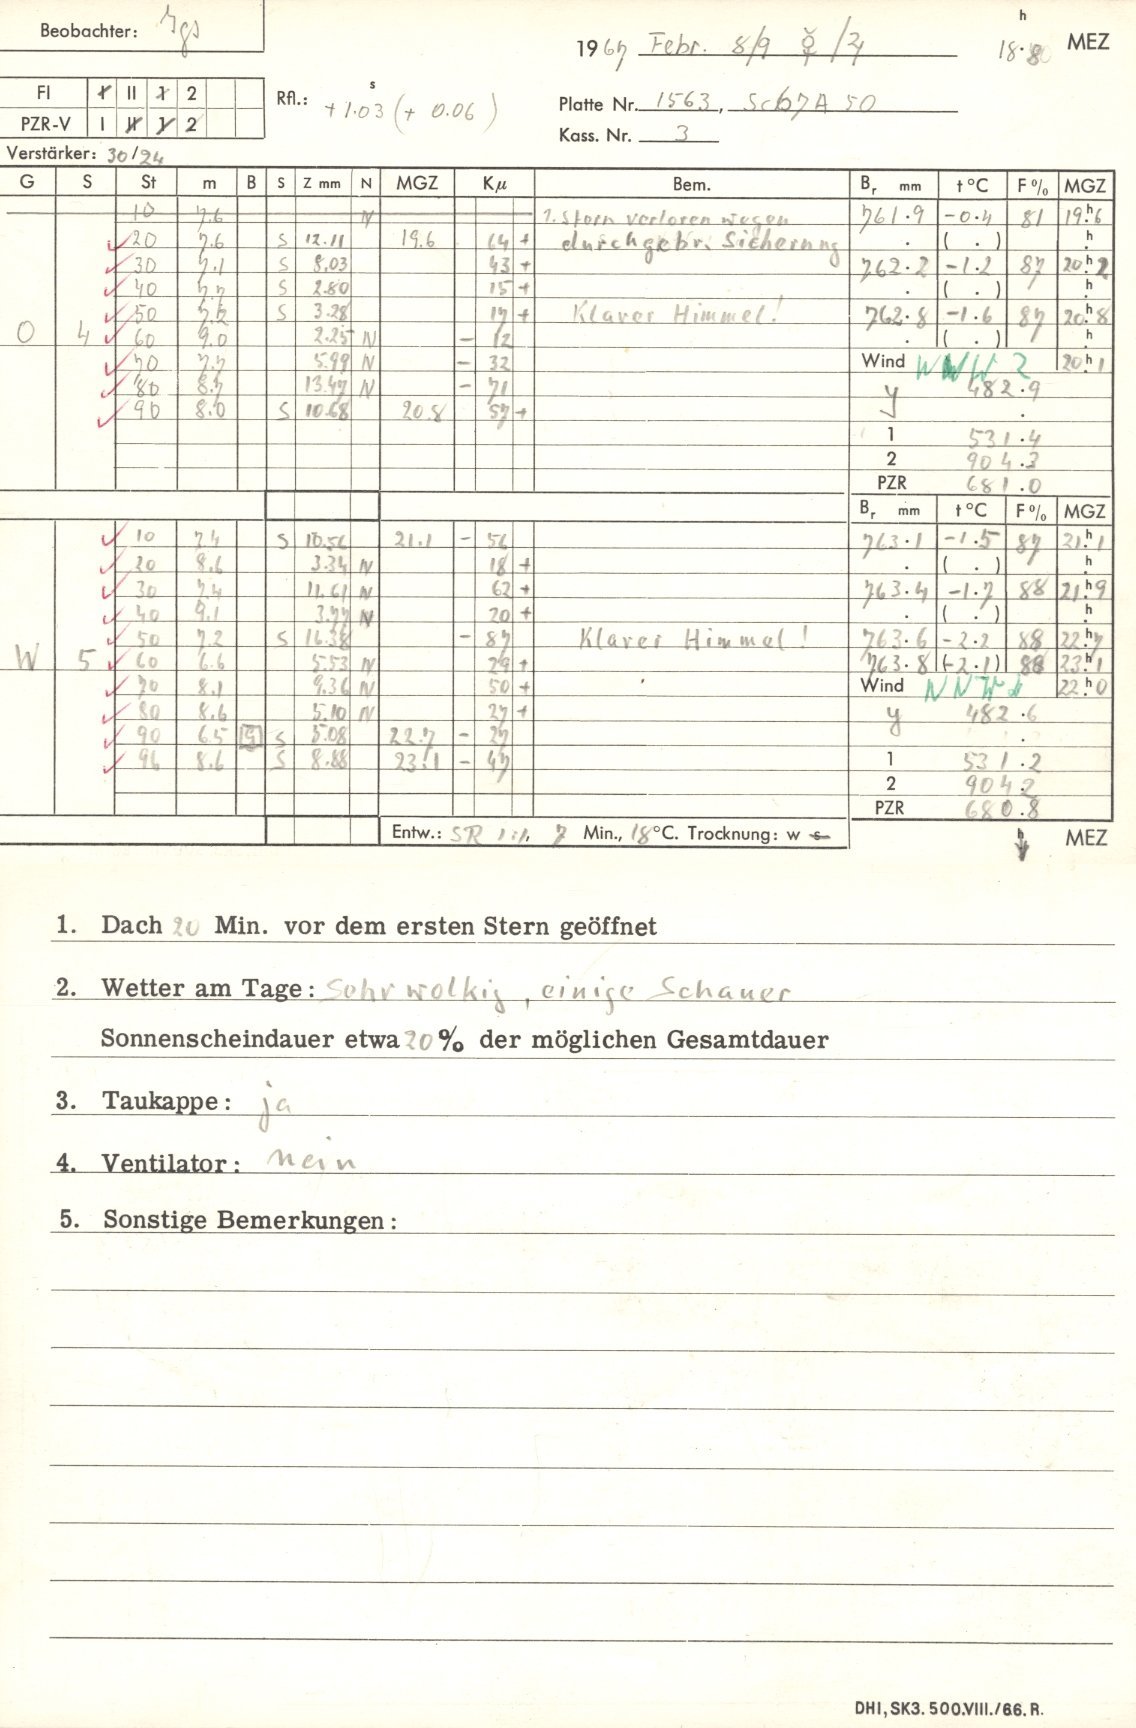 Beobachter:
1967 Febr. 8/9 ☿/♃ 18.h80 MEZ
FI I II 1 2
PZR-V I II 1 2
Rfl.: +1.03s (+ 0.06)
Platte Nr. 1563, Sc67A 50
Kass. Nr. 3
Verstärker: 30/24
G S St m B S Z mm N MGZ Kμ Bem. Br mm t °C F % MGZ
10 7.6 N 1. Stern verloren wegen 761.9 -0.4 81 19.h6
20 7.6 S 12.11 19.6 64 + durchgebr. Sicherung . ( . ) h.
30 7.1 S 8.03 43 + 762.2 -1.2 87 20.h2
40 7.7 S 2.80 15 + . ( . ) h.
50 7.2 S 3.28 17 + Klarer Himmel! 762.8 -1.6 87 20.h8
O 4 60 9.0 2.25 N - 12 . ( . ) h.
70 7.7 5.99 N - 32 Wind WNW 2 20.h1
80 8.7 13.47 N - 71 y 482.9
90 8.0 S 10.68 20.8 57 + .
1 531.4
2 904.3
PZR 681.0
Br mm t °C F % MGZ
10 7.4 S 10.56 21.1 - 56 763.1 -1.5 87 21.h1
20 8.6 3.34 N 18 + . ( . ) h.
30 7.4 11.61 N 62 + 763.4 -1.7 88 21.h9
40 9.1 3.77 N 20 + . ( . ) h.
50 7.2 S 16.38 - 87 Klarer Himmel! 763.6 -2.2 88 22.h7
W 5 60 6.6 5.53 N 29 + 763.8 (-2.1) 88 23.h1
70 8.1 9.36 N 50 + Wind 22.h0
80 8.6 5.10 N 27 + y 482.6
90 6.5 S 5.08 22.7 - 27 .
96 8.6 S 8.88 23.1 - 47 1 531.2
2 904.2
PZR 680.8
Entw.: SR 1:1, 7 Min., 18°C. Trocknung: w s h MEZ
1. Dach 20 Min. vor dem ersten Stern geöffnet
2. Wetter am Tage: Sehr wolkig, einige Schauer
Sonnenscheindauer etwa 20% der möglichen Gesamtdauer
3. Taukappe: ja
4. Ventilator: nein
5. Sonstige Bemerkungen:
DHI, SK3. 500.VIII./66. R.